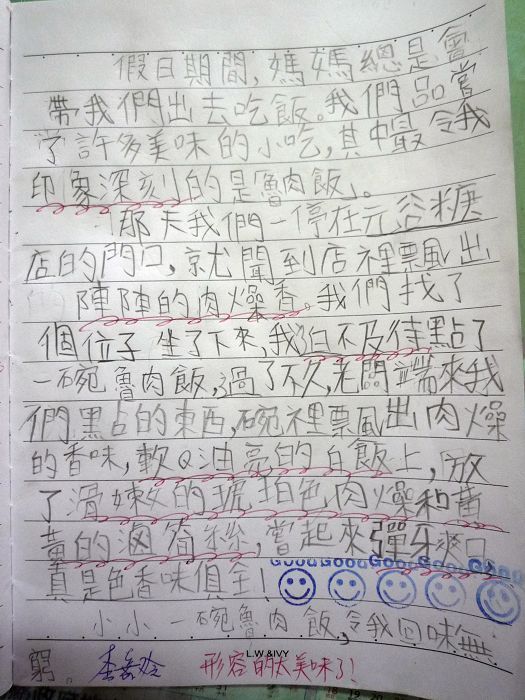 假日期間,媽媽總是會
帶我們出去吃飯。我們品嘗
了許多美味的小吃,其中最令我
印象深刻的是「魯肉飯」。
那天我們一停在元谷糖
店的門口,就聞到店裡飄出
陣陣的肉燥香。我們找了
個位子坐了下來,我迫不及待點了
一碗魯肉飯,過了不久,老闆端來我
們點的東西,碗裡飄出肉燥
的香味,軟Q油亮的白飯上,放
了滑嫩的琥珀色肉燥和黃
黃的滷筍絲,嘗起來彈牙爽口
真是色香味俱全!
Good Good Good Good Good
小小一碗魯肉飯,令我回味無
窮。
形容的太美味了!
L.W.&IVY